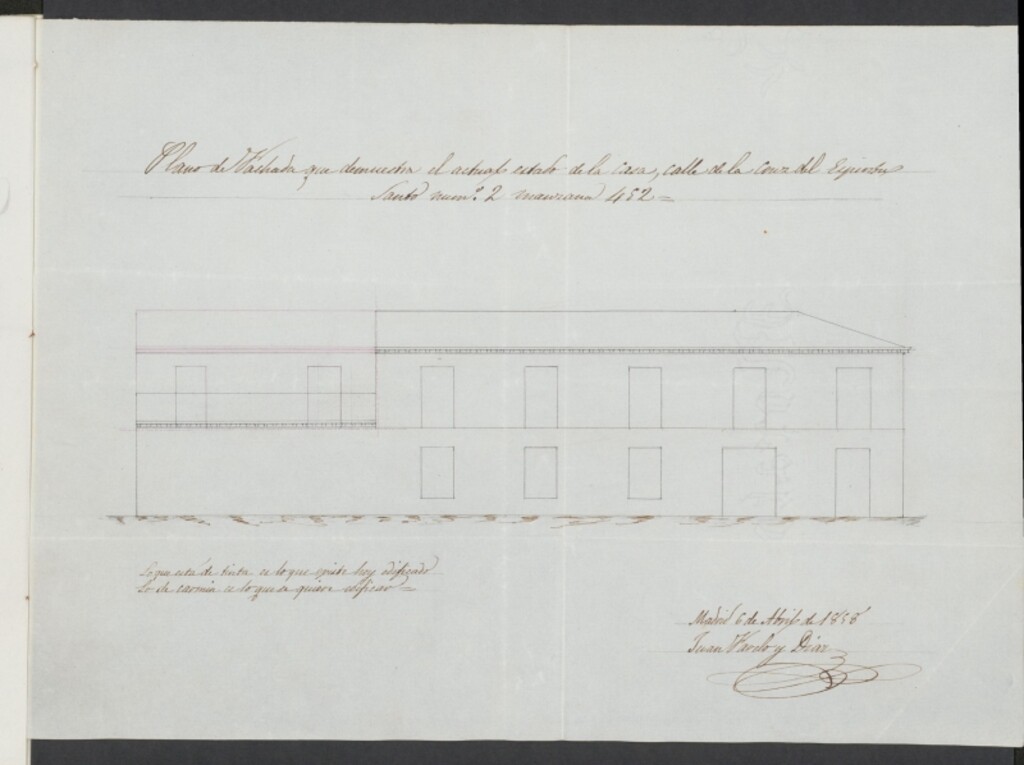 Plano de Fachada que demuestra el actual estado de la Casa, calle de la Cruz del Espiritu
Santo num.º 2 manzana 452=
Lo que está de tinta es lo que existe hoy edificado
Lo de carmin es lo que se quiere edificar=
Madrid 6 de Abril de 1858
Juan y Diaz